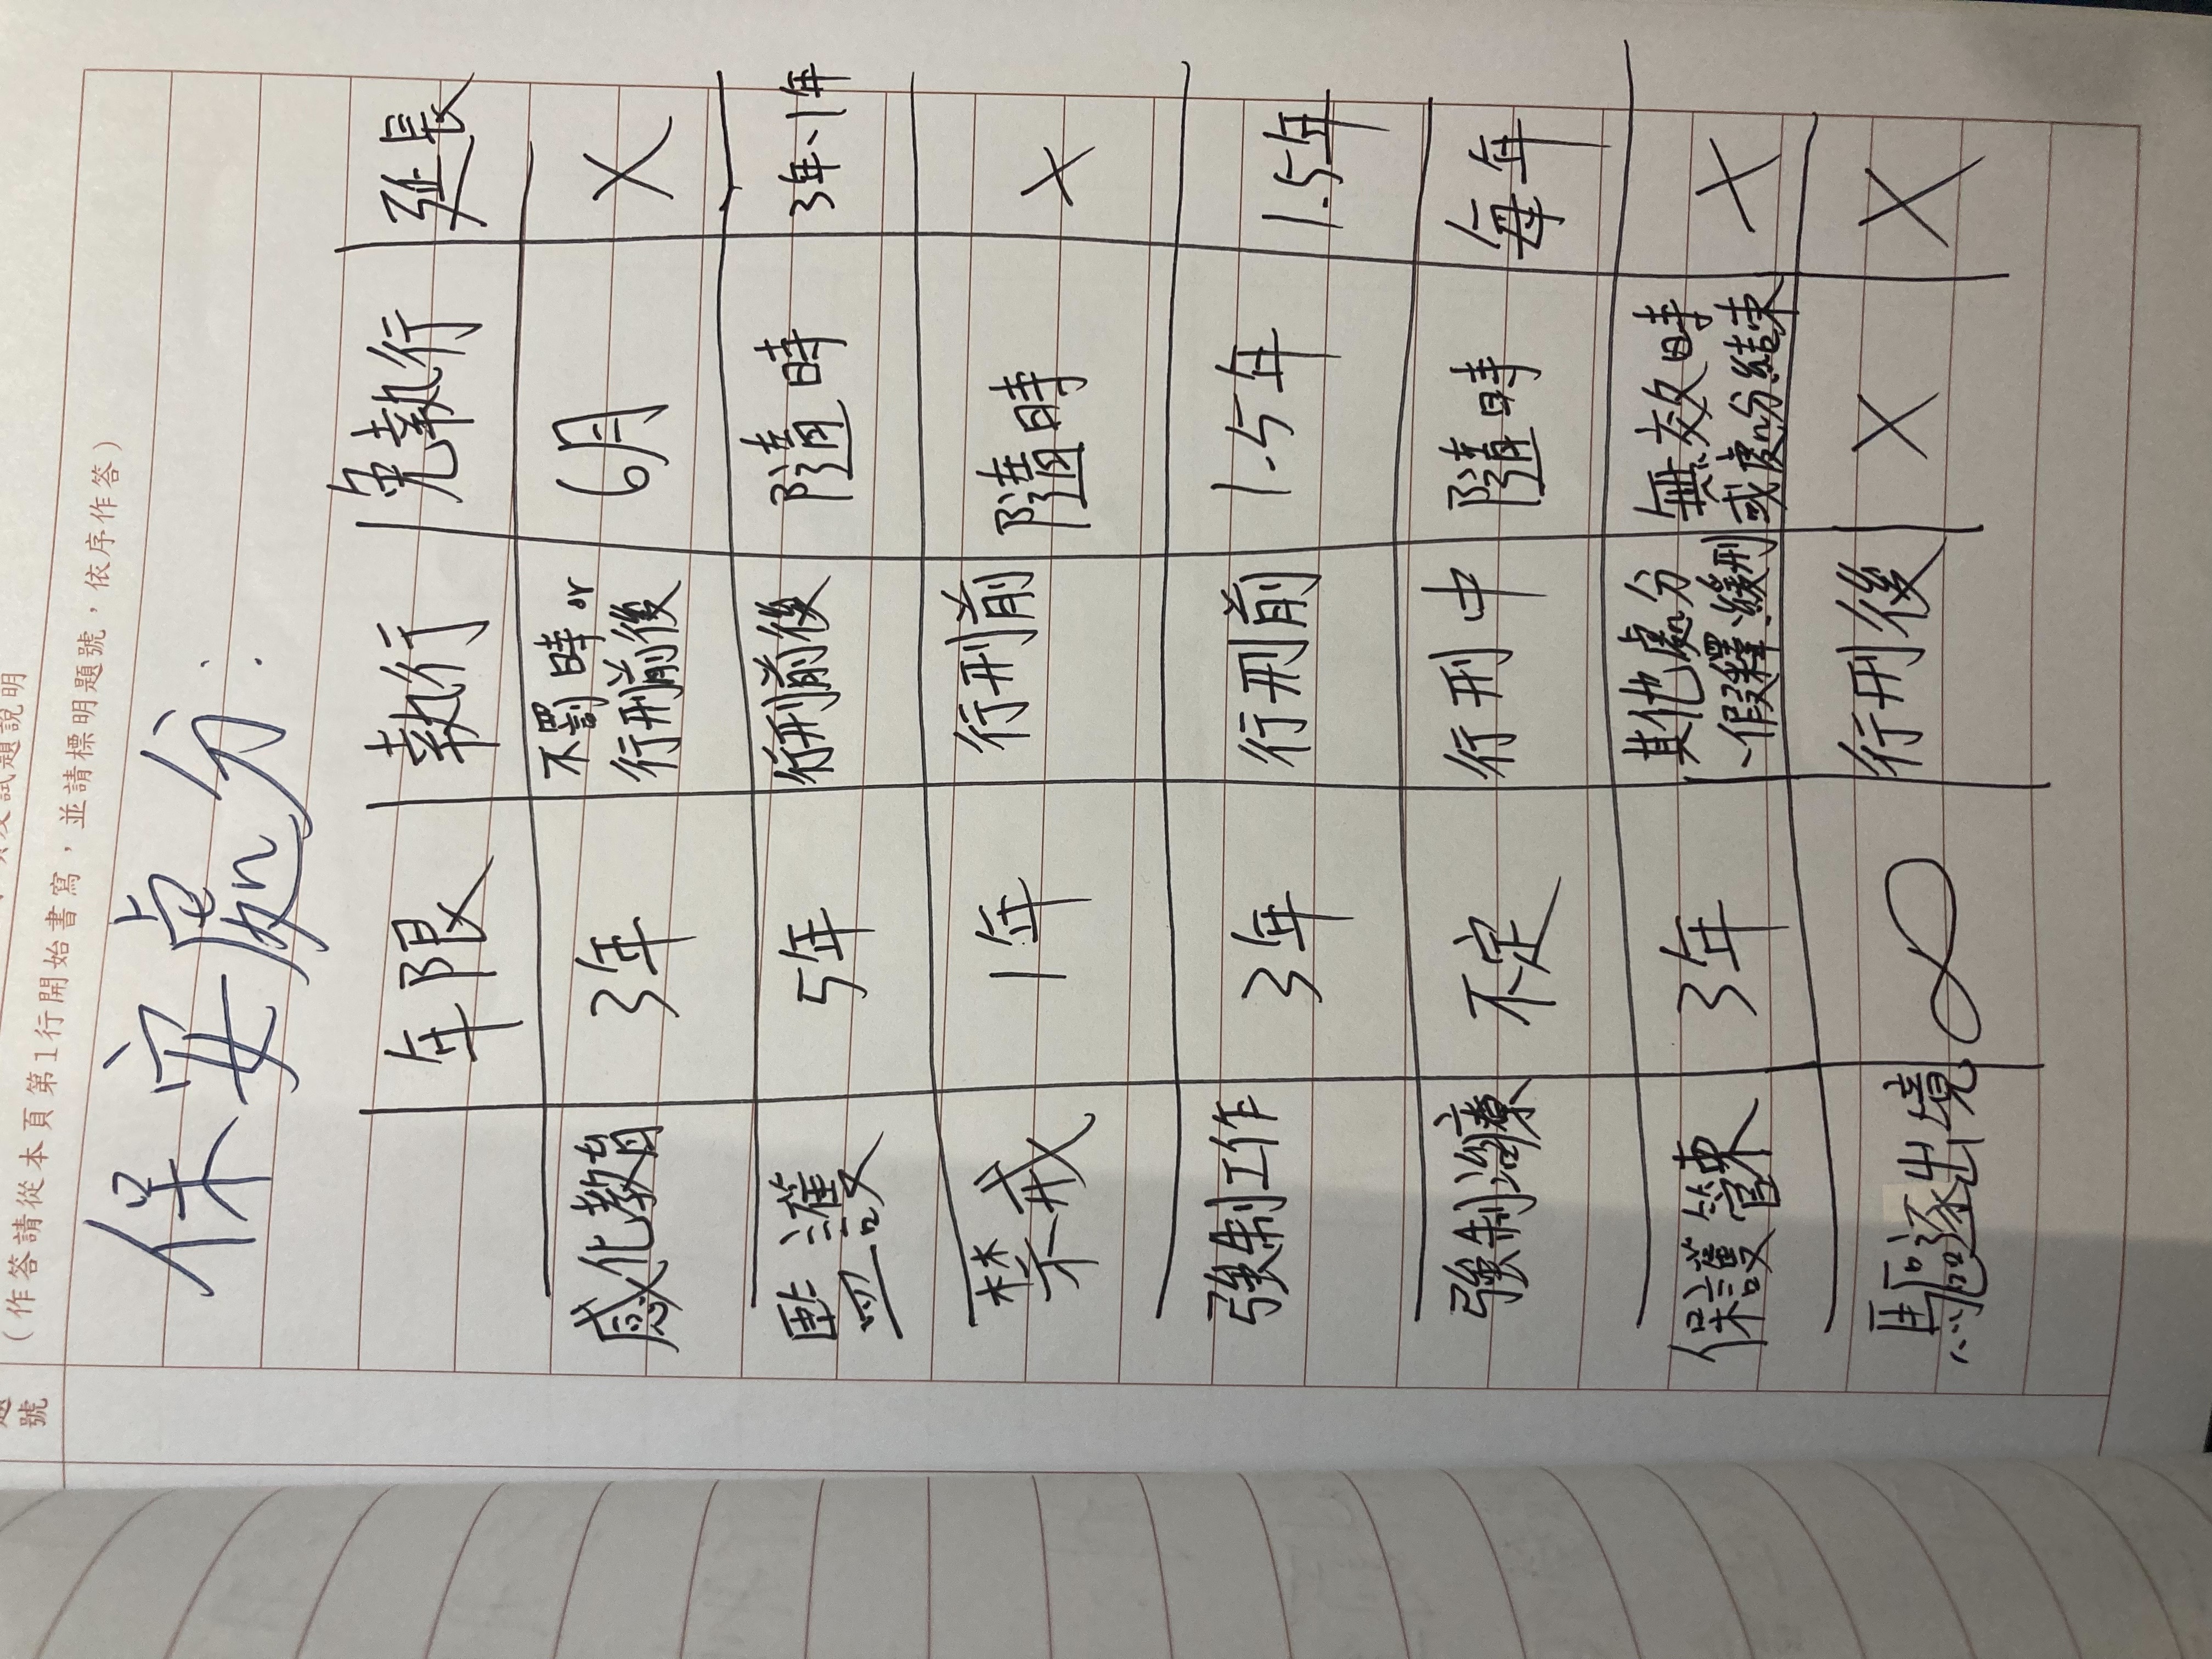 試題說明
（作答請從本頁第1行開始書寫，並請標明題號，依序作答）
號
保安處分：
年限 執行 免執行 延長
感化教育 3年 不罰時or 行刑前後 6月 X
監護 5年 行刑前後 隨時 3年、1年
禁戒 1年 行刑前 隨時 X
強制工作 3年 行刑前 1.5年 1.5年
強制治療 不定 行刑中 隨時 每年
保護管束 3年 其他處分、假釋、緩刑 無效時或處分結束 X
驅逐出境 ∞ 行刑後 X X